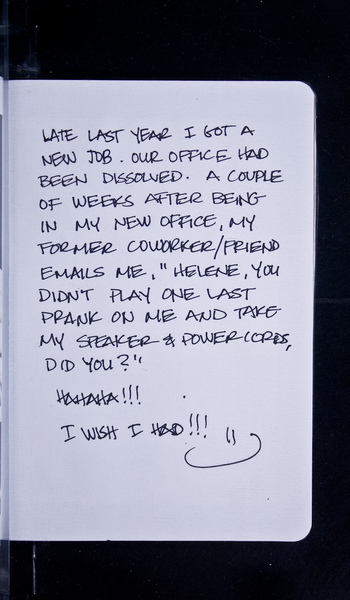 LATE LAST YEAR I GOT A
NEW JOB. OUR OFFICE HAD
BEEN DISSOLVED. A COUPLE
OF WEEKS AFTER BEING
IN MY NEW OFFICE, MY
FORMER COWORKER/FRIEND
EMAILS ME, "HELENE, YOU
DIDN'T PLAY ONE LAST
PRANK ON ME AND TAKE
MY SPEAKER & POWER CORDS,
DID YOU?"
HAHAHA!!!
I WISH I HAD!!!